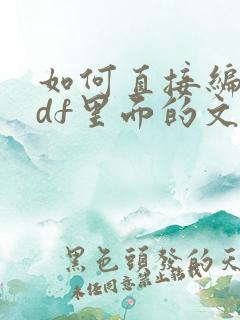 如何直接编
df里面的文
黑色頭發的天
未经同意禁止转载